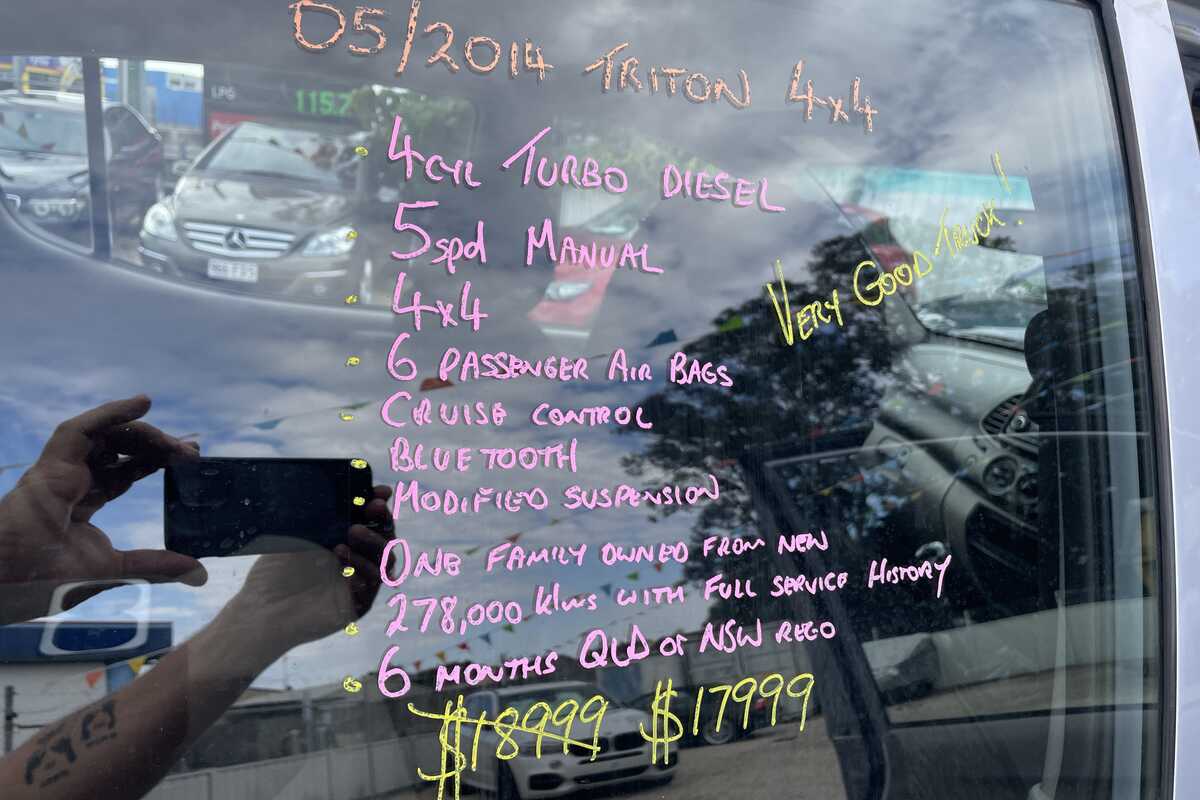 05/2014 TRITON 4x4
LPG 115.7
• 4CYL TURBO DIESEL
• 5spd MANUAL
VERY GOOD TRUCK!
• 4x4
• 6 PASSENGER AIR BAGS
• CRUISE CONTROL
• BLUETOOTH
• MODIFIED SUSPENSION
• ONE FAMILY OWNED FROM NEW
• 278,000 klms WITH FULL SERVICE HISTORY
• 6 MONTHS QLD or NSW REGO
$18999 $17999